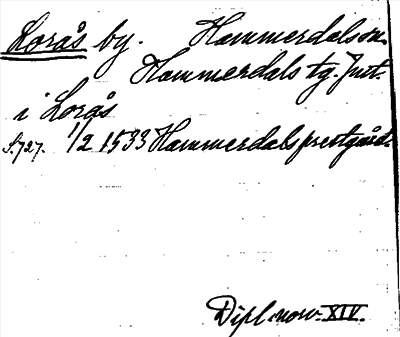 Lorås by. Hammerdals sn.
Hammerdals tg. Jmt.
i Lorås
S. 727. 1/2 1533 Hammerdals prestgård.
Dipl. norv. XIV.